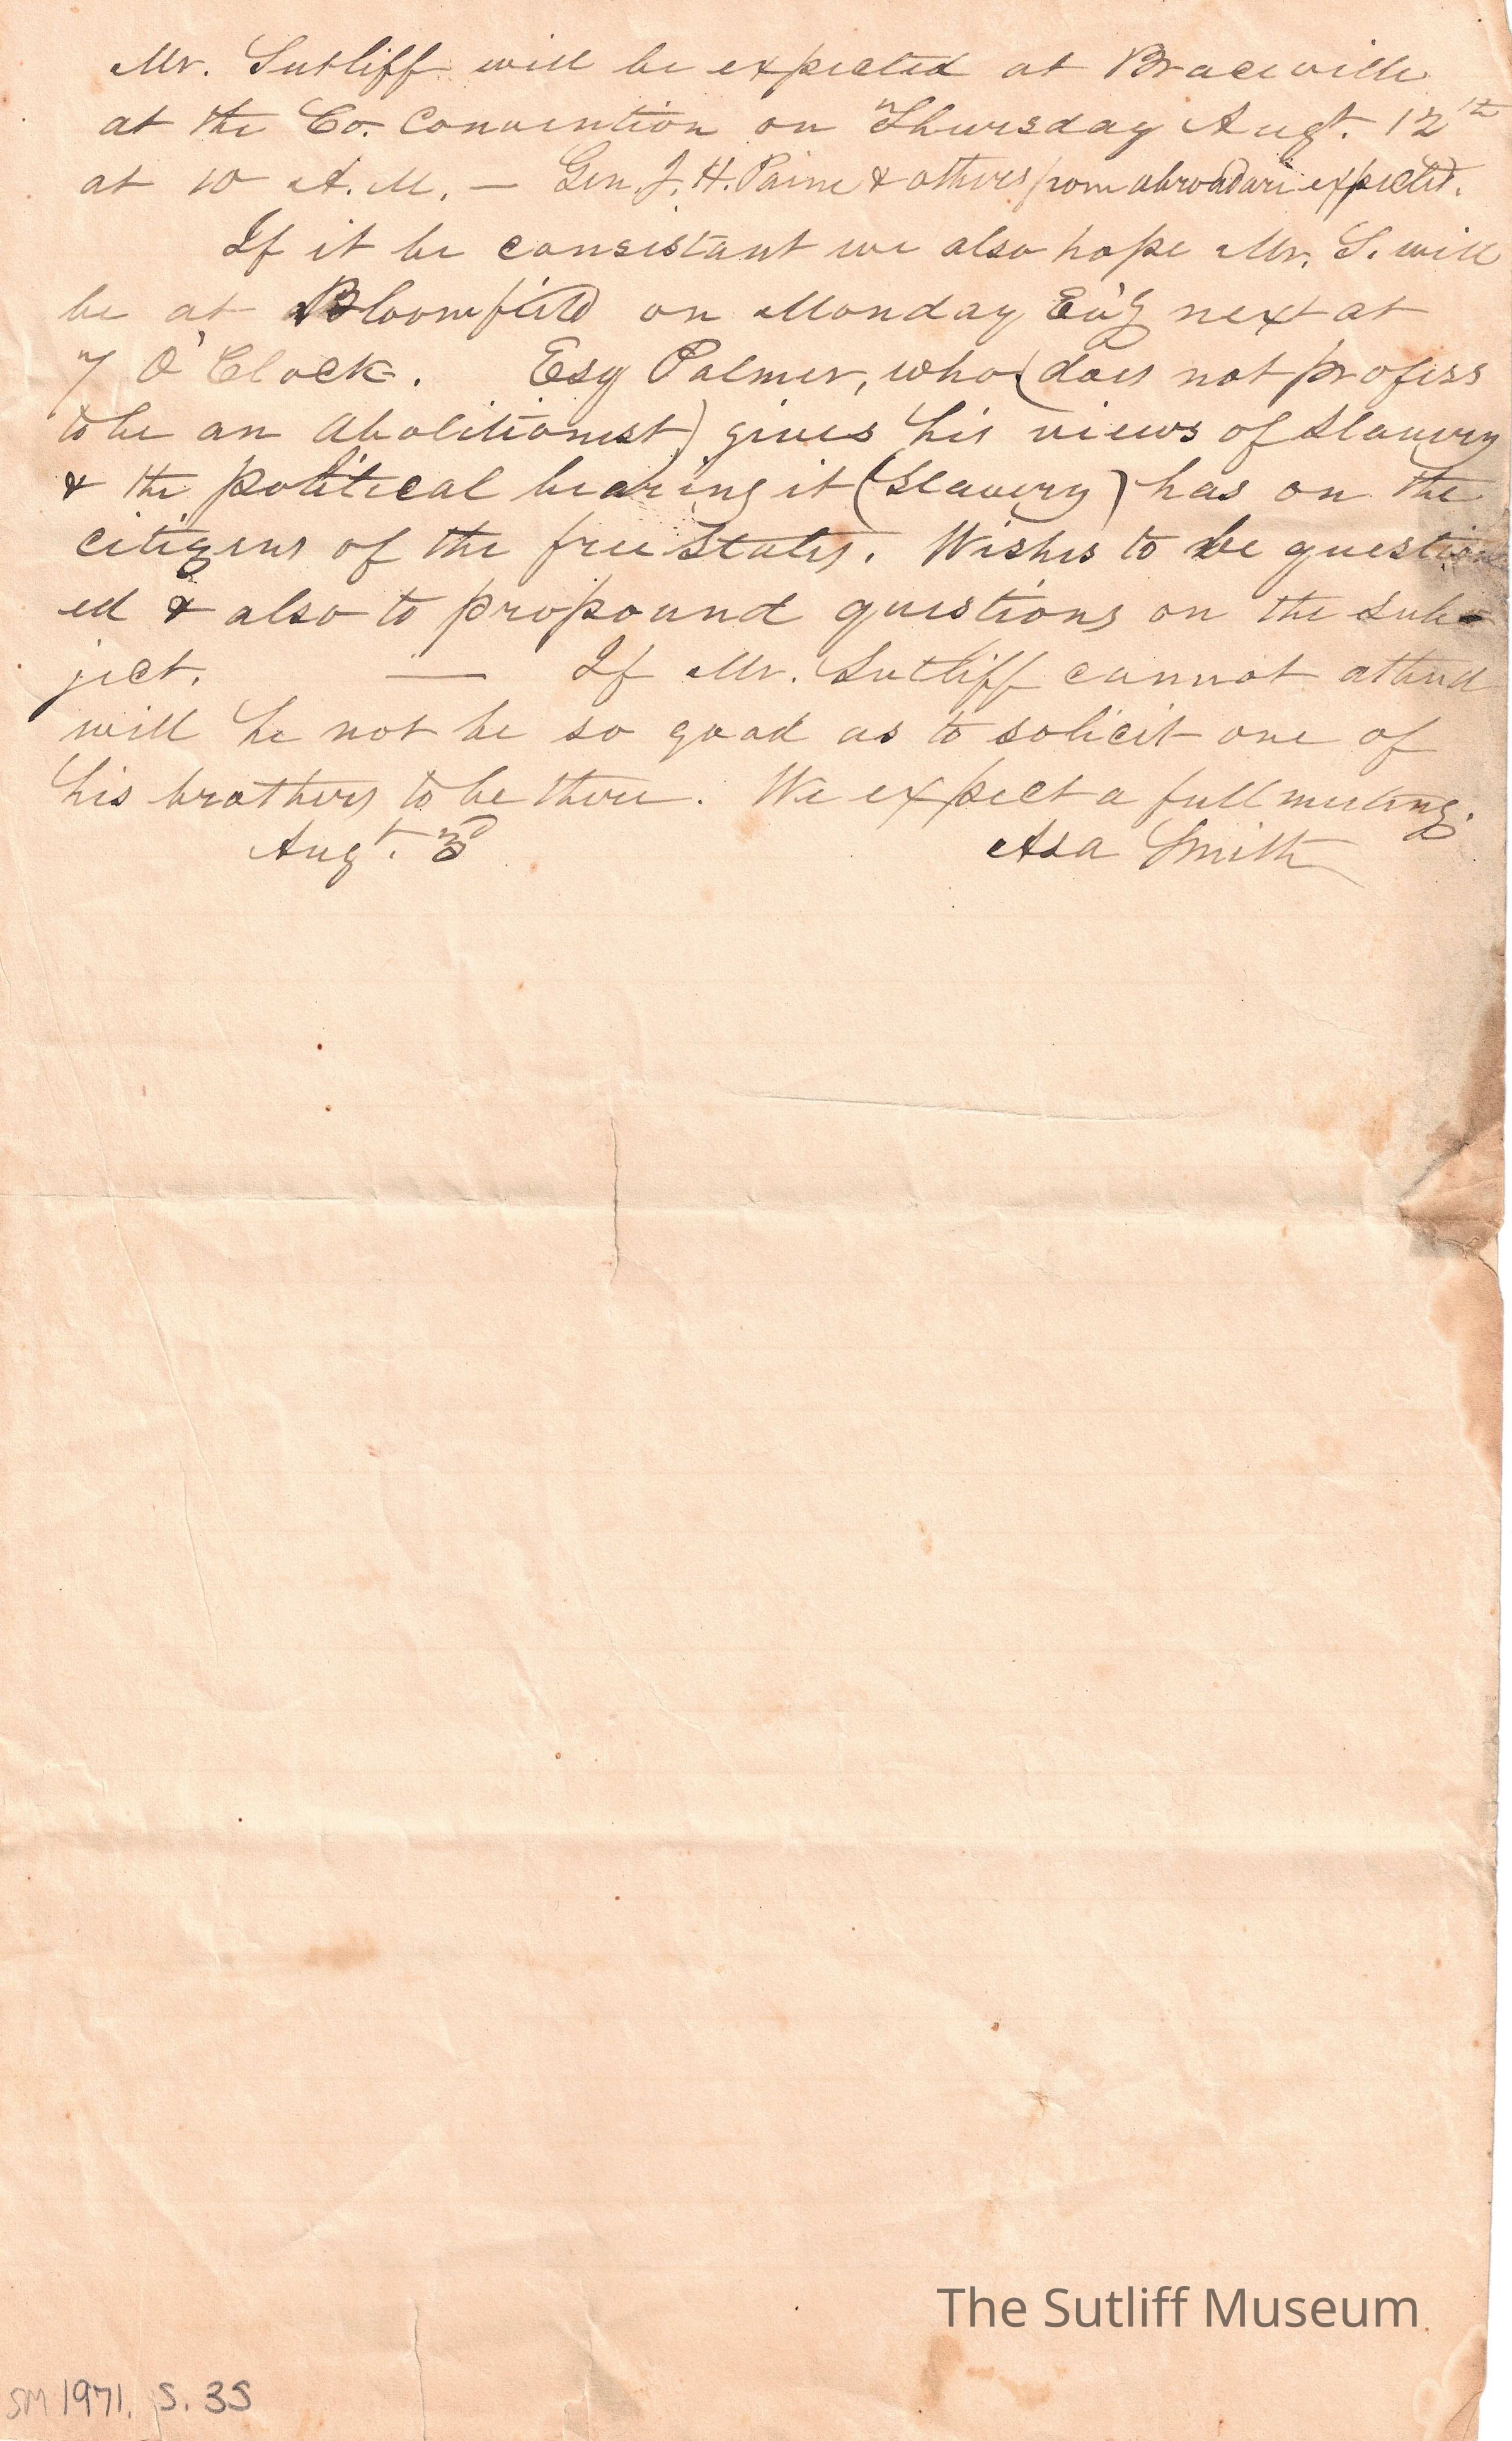 Mr. Sutliff will be expected at Braceville
at the Co. Convention on Thursday Augt. 12th
at 10 A.M. — Gen. J. H. Paine & others from abroad are expected.
If it be consistant we also hope Mr. S. will
be at Bloomfield on Monday Ev'g next at
7 O'Clock. Esq Palmer, who (does not profess
to be an Abolitionist) gives his views of Slavery
& the political bearing it (Slavery) has on the
citizens of the free States. Wishes to be question
ed & also to propound questions on the sub-
ject. — If Mr. Sutliff cannot attend
will he not be so good as to solicit one of
his brothers to be there. We expect a full meeting.
Augt. 3d Asa Smith
The Sutliff Museum
SM 1971. S. 35